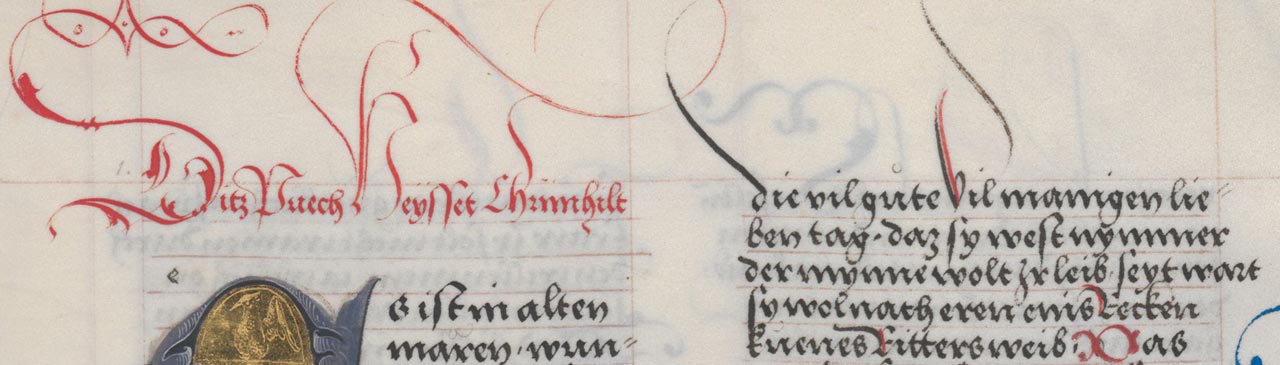 Ditz Puech Heysset Chrimhilt
e
s ist in alten
maren · wun-
die vil gute Vil manigen lie-
ben tag · daz sy west nymmer
der mynne wolt Ir leib seyt wart
sy wol nach eren eins Recken
kuenes Ritters weib · Was